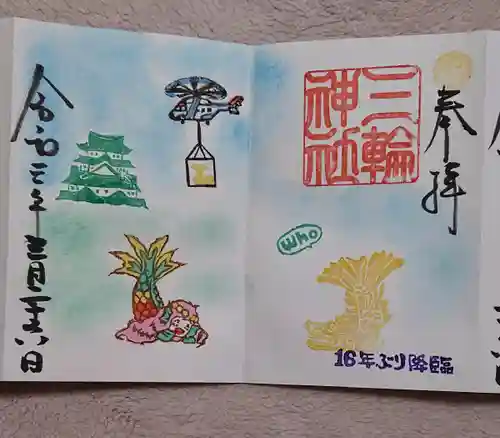 奉拝
三輪神社
who
16年ぶり降臨
令和三年三月二十六日